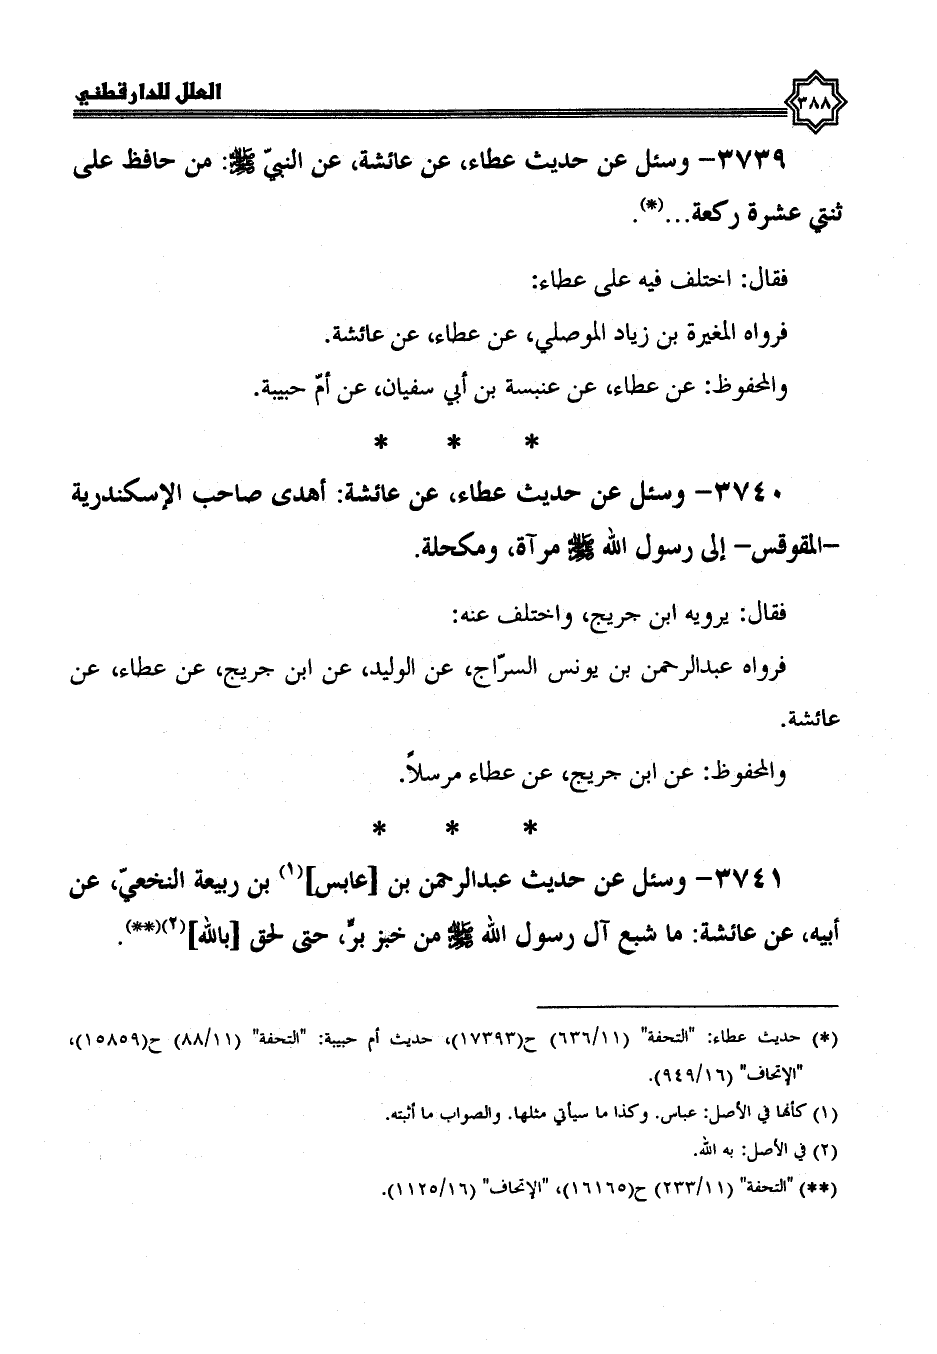 العلل للدارقطني
٣٨٨
٣٧٣٩- وسئل عن حديث عطاء، عن عائشة، عن النبيّ ﷺ: من حافظ على
ثنتي عشرة ركعة...(*).
فقال: اختلف فيه على عطاء:
فرواه المغيرة بن زياد الموصلي، عن عطاء، عن عائشة.
والمحفوظ: عن عطاء، عن عنبسة بن أبي سفيان، عن أمّ حبيبة.
* * *
٣٧٤٠- وسئل عن حديث عطاء، عن عائشة: أهدى صاحب الإسكندرية
-المقوقس- إلى رسول الله ﷺ مرآة، ومكحلة.
فقال: يرويه ابن جريج، واختلف عنه:
فرواه عبدالرحمن بن يونس السرّاج، عن الوليد، عن ابن جريج، عن عطاء، عن
عائشة.
والمحفوظ: عن ابن جريج، عن عطاء مرسلاً.
* * *
٣٧٤١- وسئل عن حديث عبدالرحمن بن [عابس](١) بن ربيعة النخعيّ، عن
أبيه، عن عائشة: ما شبع آل رسول الله ﷺ من خبز برٍّ، حتى لحق [بالله](٢)(**).
(*) حديث عطاء: "التحفة" (٦٣٦/١١) ح(١٧٣٩٣)، حديث أم حبيبة: "التحفة" (٨٨/١١) ح(١٥٨٥٩)،
"الإتحاف" (٩٤٩/١٦).
(١) كأنها في الأصل: عباس. وكذا ما سيأتي مثلها. والصواب ما أثبته.
(٢) في الأصل: به الله.
(**) "التحفة" (٢٣٣/١١) ح(١٦١٦٥)، "الإتحاف" (١١٢٥/١٦).